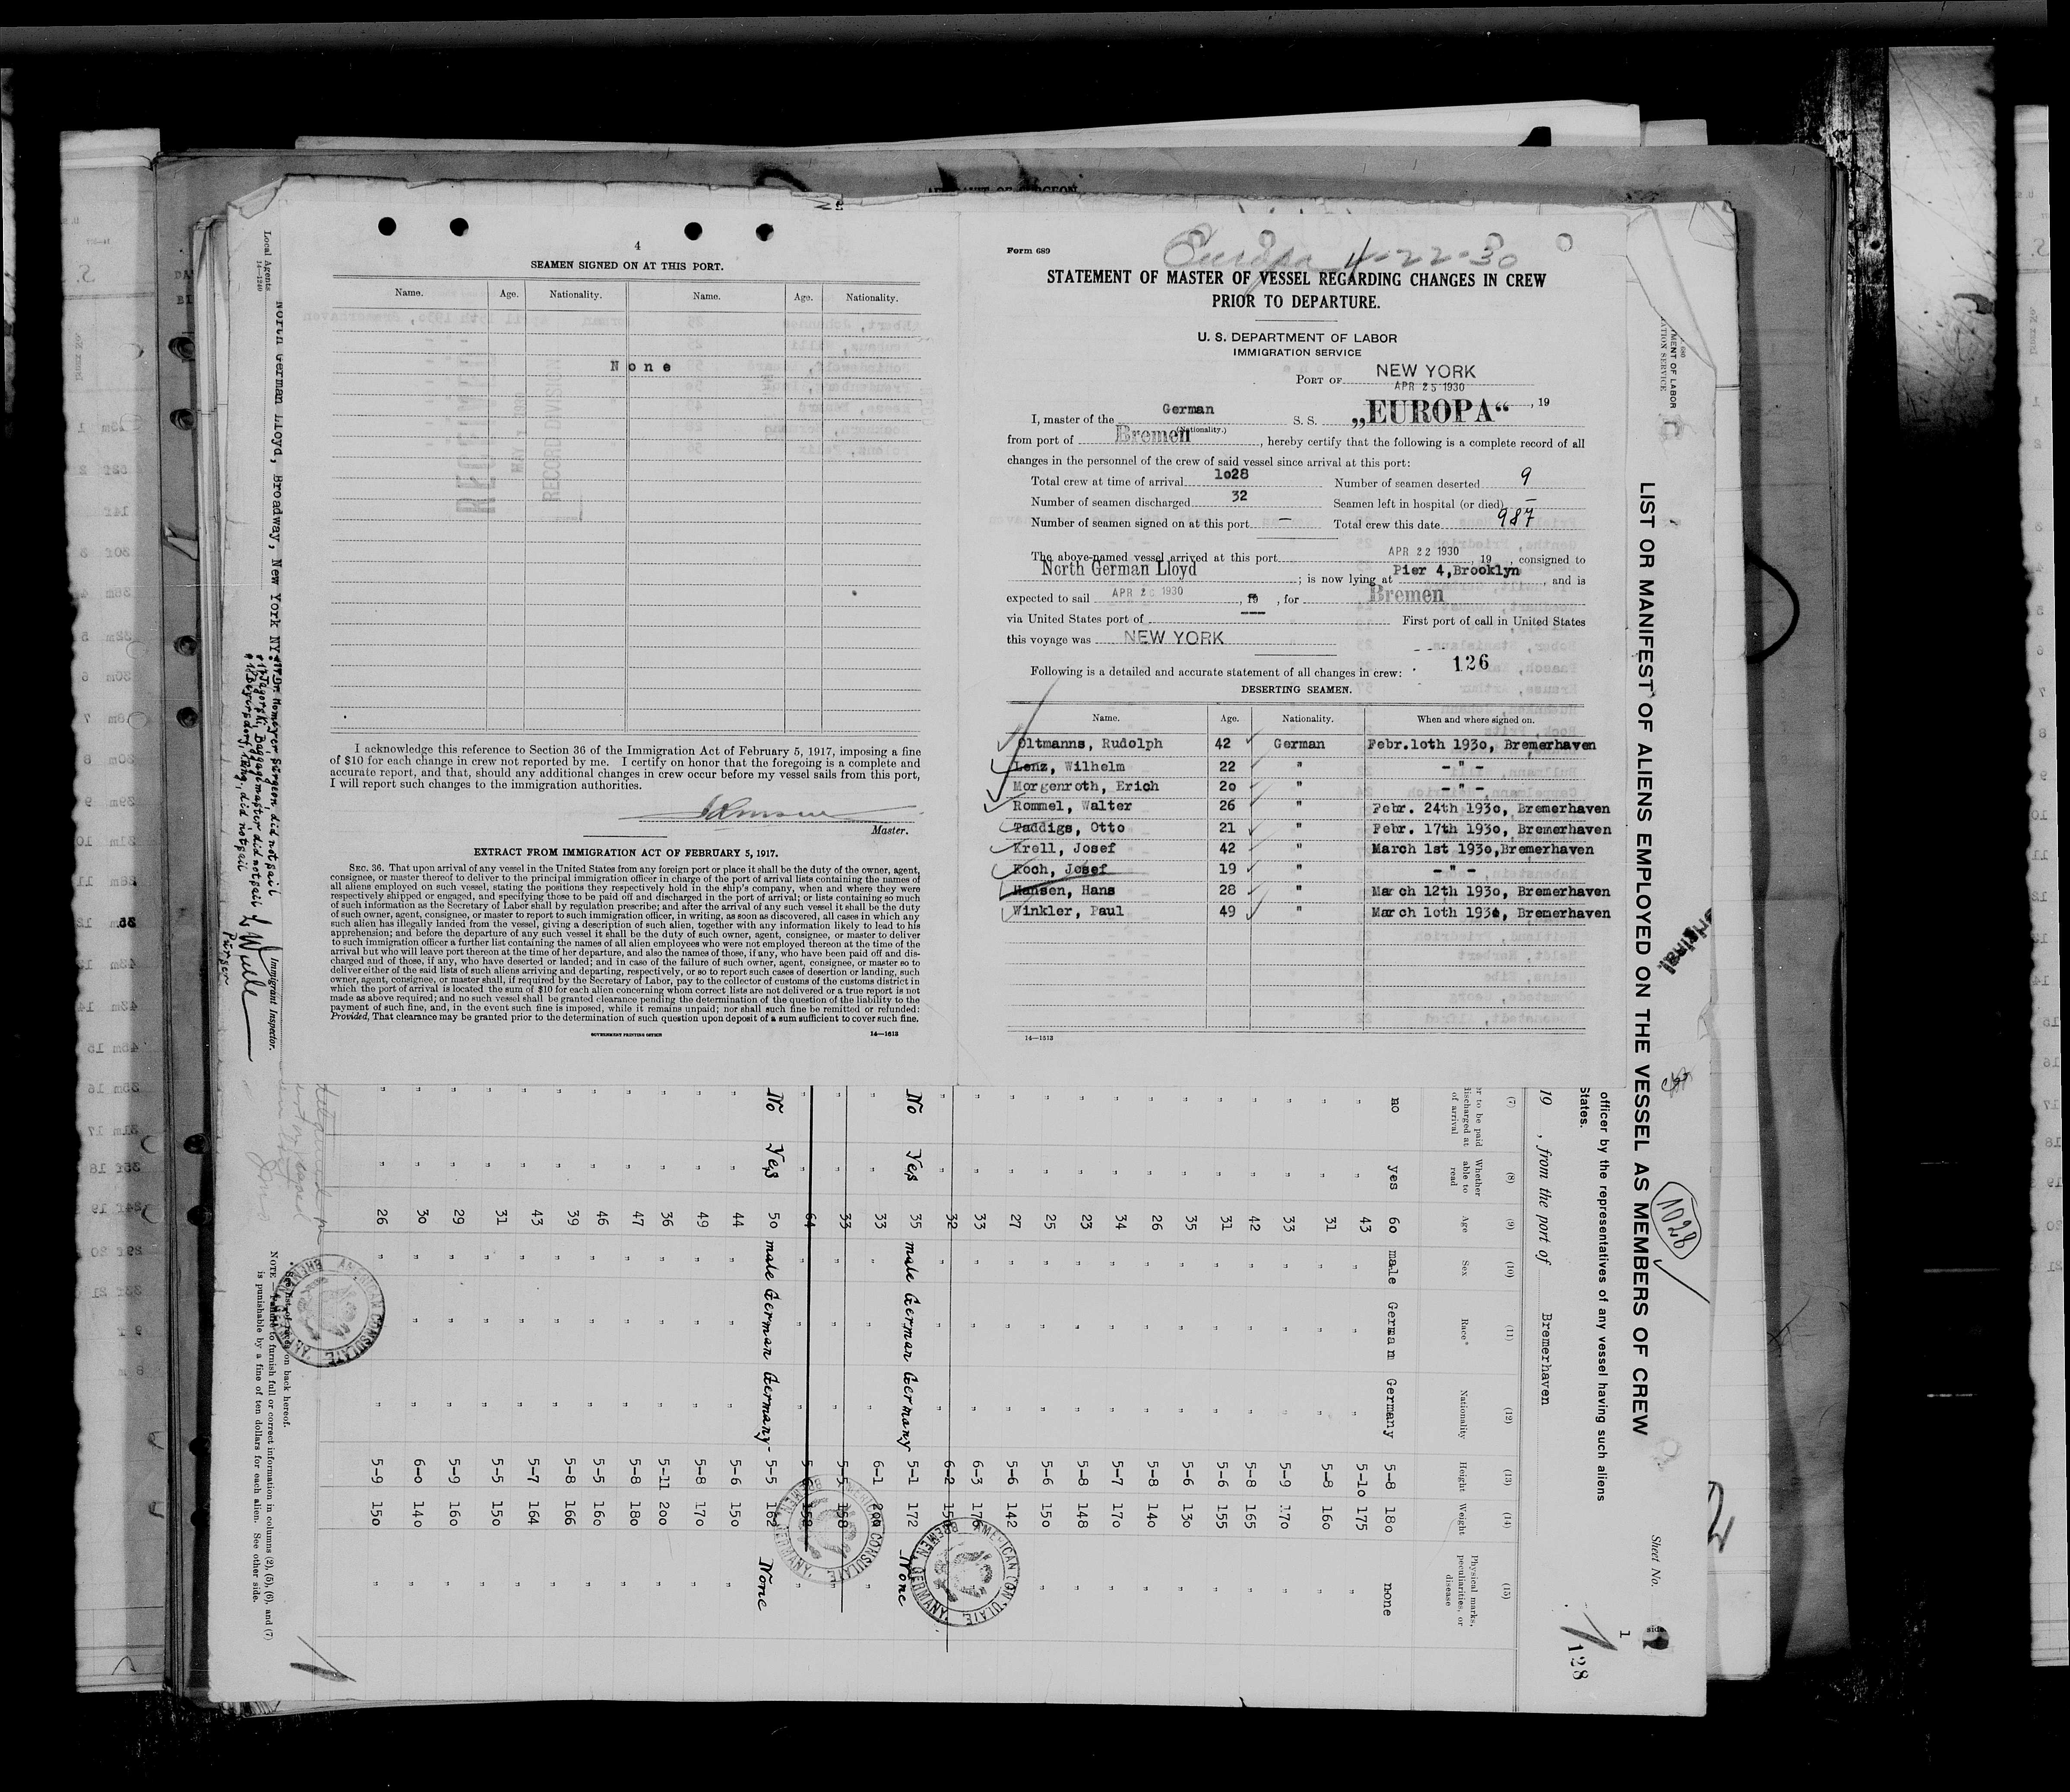 4
SEAMEN SIGNED ON AT THIS PORT.
Name. Age. Nationality. Name. Age. Nationality.
None
I acknowledge this reference to Section 36 of the Immigration Act of February 5, 1917, imposing a fine
of $10 for each change in crew not reported by me. I certify on honor that the foregoing is a complete and
accurate report, and that, should any additional changes in crew occur before my vessel sails from this port,
I will report such changes to the immigration authorities.
Master.
EXTRACT FROM IMMIGRATION ACT OF FEBRUARY 5, 1917.
SEC. 36. That upon arrival of any vessel in the United States from any foreign port or place it shall be the duty of the owner, agent,
consignee, or master thereof to deliver to the principal immigration officer in charge of the port of arrival lists containing the names of
all aliens employed on such vessel, stating the positions they respectively hold in the ship's company, when and where they were
respectively shipped or engaged, and specifying those to be paid off and discharged in the port of arrival; or lists containing so much
of such information as the Secretary of Labor shall by regulation prescribe; and after the arrival of any such vessel it shall be the duty
of such owner, agent, consignee, or master to report to such immigration officer, in writing, as soon as discovered, all cases in which any
such alien has illegally landed from the vessel, giving a description of such alien, together with any information likely to lead to his
apprehension; and before the departure of any such vessel it shall be the duty of such owner, agent, consignee, or master to deliver
to such immigration officer a further list containing the names of all alien employees who were not employed thereon at the time of the
arrival but who will leave port thereon at the time of her departure, and also the names of those, if any, who have been paid off and dis-
charged and of those, if any, who have deserted or landed; and in case of the failure of such owner, agent, consignee, or master so to
deliver either of the said lists of such aliens arriving and departing, respectively, or so to report such cases of desertion or landing, such
owner, agent, consignee, or master shall, if required by the Secretary of Labor, pay to the collector of customs of the customs district in
which the port of arrival is located the sum of $10 for each alien concerning whom correct lists are not delivered or a true report is not
made as above required; and no such vessel shall be granted clearance pending the determination of the question of the liability to the
payment of such fine, and, in the event such fine is imposed, while it remains unpaid; nor shall such fine be remitted or refunded:
Provided, That clearance may be granted prior to the determination of such question upon deposit of a sum sufficient to cover such fine.
GOVERNMENT PRINTING OFFICE 14—1513
Form 689
Europa 4-22-30
STATEMENT OF MASTER OF VESSEL REGARDING CHANGES IN CREW
PRIOR TO DEPARTURE.
U. S. DEPARTMENT OF LABOR
IMMIGRATION SERVICE
PORT OF NEW YORK
APR 25 1930, 19
I, master of the German S. S. „EUROPA“
(Nationality.)
from port of Bremen, hereby certify that the following is a complete record of all
changes in the personnel of the crew of said vessel since arrival at this port:
Total crew at time of arrival 1o28 Number of seamen deserted 9
Number of seamen discharged 32 Seamen left in hospital (or died) —
Number of seamen signed on at this port — Total crew this date 987
The above-named vessel arrived at this port APR 22 1930, 19 , consigned to
North German Lloyd; is now lying at Pier 4,Brooklyn, and is
expected to sail APR 2 1930, 19 , for Bremen
via United States port of First port of call in United States
this voyage was NEW YORK
Following is a detailed and accurate statement of all changes in crew: 126
DESERTING SEAMEN.
Name. Age. Nationality. When and where signed on.
Oltmanns, Rudolph 42 German Febr.1oth 193o, Bremerhaven
Lenz, Wilhelm 22 " - " -
Morgenroth, Erich 2o " - " -
Rommel, Walter 26 " Febr. 24th 193o, Bremerhaven
Taddigs, Otto 21 " Febr. 17th 193o, Bremerhaven
Krell, Josef 42 " March 1st 193o,Bremerhaven
Koch, Josef 19 " - " -
Hansen, Hans 28 " March 12th 193o, Bremerhaven
Winkler, Paul 49 " March 1oth 193o, Bremerhaven
14—1513
LIST OR MANIFEST OF ALIENS EMPLOYED ON THE VESSEL AS MEMBERS OF CREW
1028
Sheet No. 1
128
officer by the representatives of any vessel having such aliens
States.
19 , from the port of Bremerhaven
(7) (8) (9) (10) (11) (12) (13) (14) (15)
Whether able to read Age Sex Race* Nationality Height Weight Physical marks, peculiarities, or disease
no yes 6o male German Germany 5-8 18o none
" " 43 " " " 5-1o 175 "
" " 31 " " " 5-8 16o "
" " 33 " " " 5-9 170 "
" " 42 " " " 5-8 165 "
" " 31 " " " 5-6 155 "
" " 35 " " " 5-6 13o "
" " 26 " " " 5-8 14o "
" " 34 " " " 5-7 17o "
" " 23 " " " 5-8 148 "
" " 25 " " " 5-6 15o "
" " 27 " " " 5-6 142
" " 33 " " " 6-3 176
" " 32 " " " 6-2
No Yes 35 male German Germany 5-1 172 None
" " 33 " " " 6-1 200 "
" " 33 " " " 5-5 158 "
" " 64 " " " 158 "
No Yes 50 male German Germany- 5-5 162 None
" " 44 " " " 5-6 15o "
" " 49 " " " 5-8 17o "
" " 36 " " " 5-11 2oo "
" " 47 " " " 5-8 18o "
" " 46 " " " 5-5 16o "
" " 39 " " " 5-8 166 "
" " 43 " " " 5-7 164 "
" " 31 " " " 5-5 15o "
" " 29 " " " 5-9 16o "
" " 3o " " " 6-o 14o "
" " 26 " " " 5-9 15o "
AMERICAN CONSULATE BREMEN, GERMANY.
Local Agents North German Lloyd, Broadway, New York NY.
14—1240
Surgeon, did not sail
Baggagemaster, did not sail
did not sail
Purser
Immigrant Inspector.
on back hereof.
NOTE.—Failure to furnish full or correct information in columns (2), (5), (6), and (7)
is punishable by a fine of ten dollars for each alien. See other side.